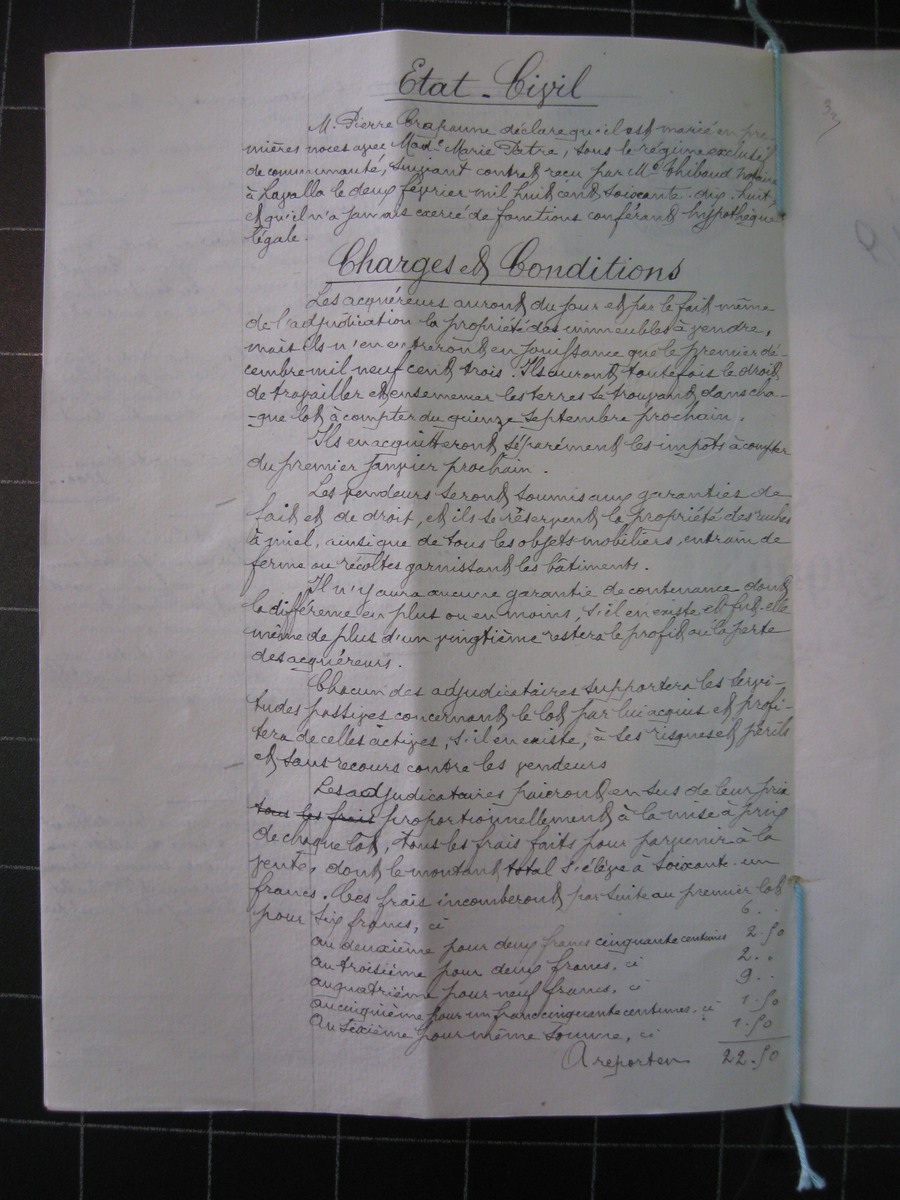 Etat-Civil
M. Pierre Crapaume déclare qu'il est marié en pre-
mières noces avec Made Marie Patra, sous le régime exclusif
de communauté, suivant contrat reçu par Me Thibaud notaire
à Lavalla le deux février mil huit cent soixante-dix-huit,
et qu'il n'a jamais exercé de fonctions conférant hypothèque
légale.
Charges et Conditions
Les acquéreurs auront du jour et par le fait même
de l'adjudication la propriété des immeubles à vendre,
mais ils n'en entreront en jouissance que le premier dé-
cembre mil neuf cent trois. Ils auront toutefois le droit
de travailler et ensemencer les terres se trouvant dans cha-
-que lot à compter du quinze septembre prochain.
Ils en acquitteront séparément les impôts à compter
du premier janvier prochain.
Les vendeurs seront soumis aux garanties de
fait et de droit, et ils se réservent la propriété des ruches
à miel, ainsi que de tous les objets mobiliers, entrain de
ferme ou récoltes garnissant les bâtiments.
Il n'y aura aucune garantie de contenance dont
la différence en plus ou en moins, s'il en existe et fut-elle
même de plus d'un vingtième restera le profit ou la perte
des acquéreurs.
Chacun des adjudicataires supportera les servi-
tudes passives concernant le lot par lui acquis et profi-
tera de celles actives, s'il en existe, à ses risques et périls
et sans recours contre les vendeurs
Les adjudicataires paieront en sus de leur prix
tous les frais proportionnellement à la mise à prix
de chaque lot, tous les frais faits pour parvenir à la
vente, dont le montant total s'élève à soixante-un
francs. Ces frais incomberont par suite au premier lot
pour six francs, ci 6..
au deuxième pour deux francs cinquante centimes 2.50
au troisième pour deux francs, ci 2..
au quatrième pour neuf francs, ci 9..
au cinquième pour un franc cinquante centimes, ci 1.50
Au sixième pour même somme, ci 1.50
A reporter 22.50